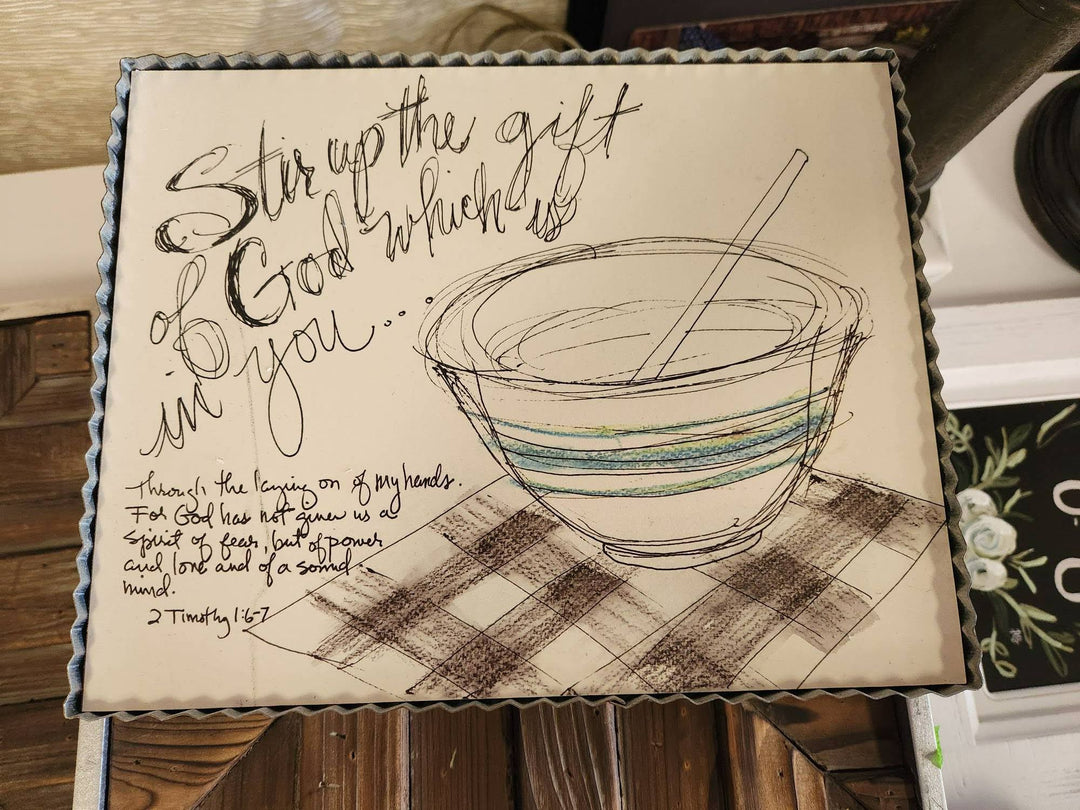 Stir up the gift
of God which is
in you...
through the laying on of my hands.
For God has not given us a
spirit of fear, but of power
and love and of a sound
mind.
2 Timothy 1:6-7